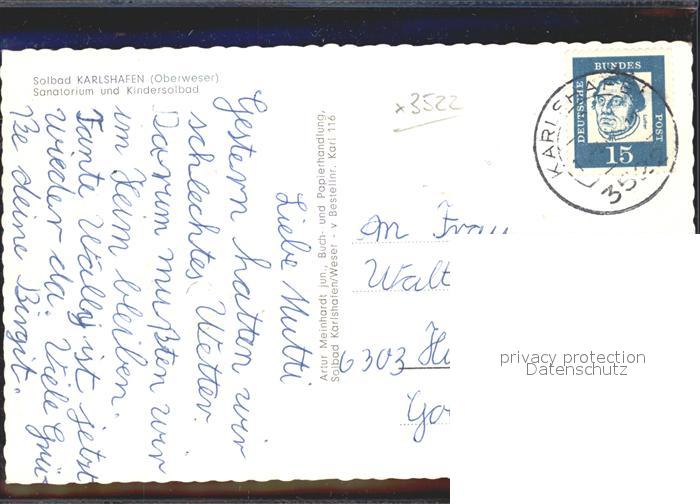 Solbad KARLSHAFEN (Oberweser)
Sanatorium und Kindersolbad
Liebe Mutti
Gestern hatten wir
schlechtes Wetter.
Darum mußten wir
im Heim bleiben.
Tante Wally ist jetzt
wieder da. Viele Grü-
ße deine Birgit.
Artur Meinhardt jun., Buch- und Papierhandlung,
Solbad Karlshafen/Weser - v Bestellnr. Karl 116
x3522
DEUTSCHE BUNDES POST
15
KARLSHAFEN
3522
An Frau
Walt
6303 Hu
Go
privacy protection
Datenschutz